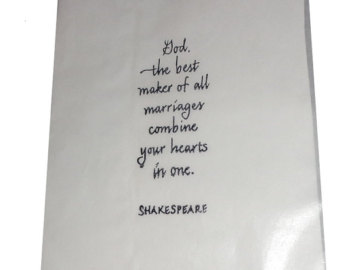 God,
the best
maker of all
marriages
combine
your hearts
in one.
SHAKESPEARE